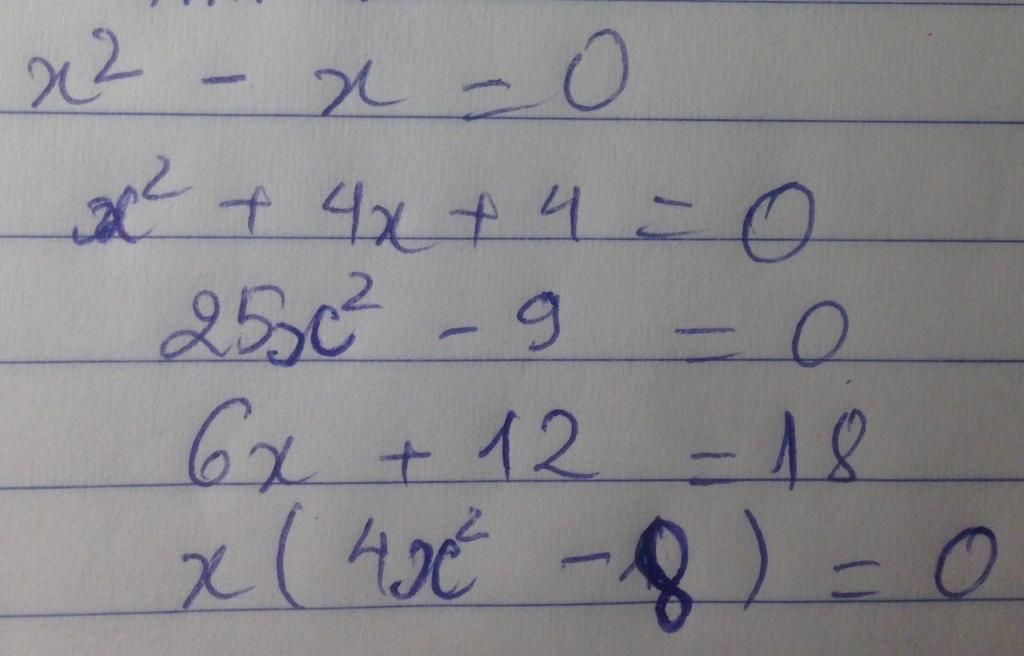 x² - x = 0
x² + 4x + 4 = 0
25x² - 9 = 0
6x + 12 = 18
x( 4x² - 8 ) = 0